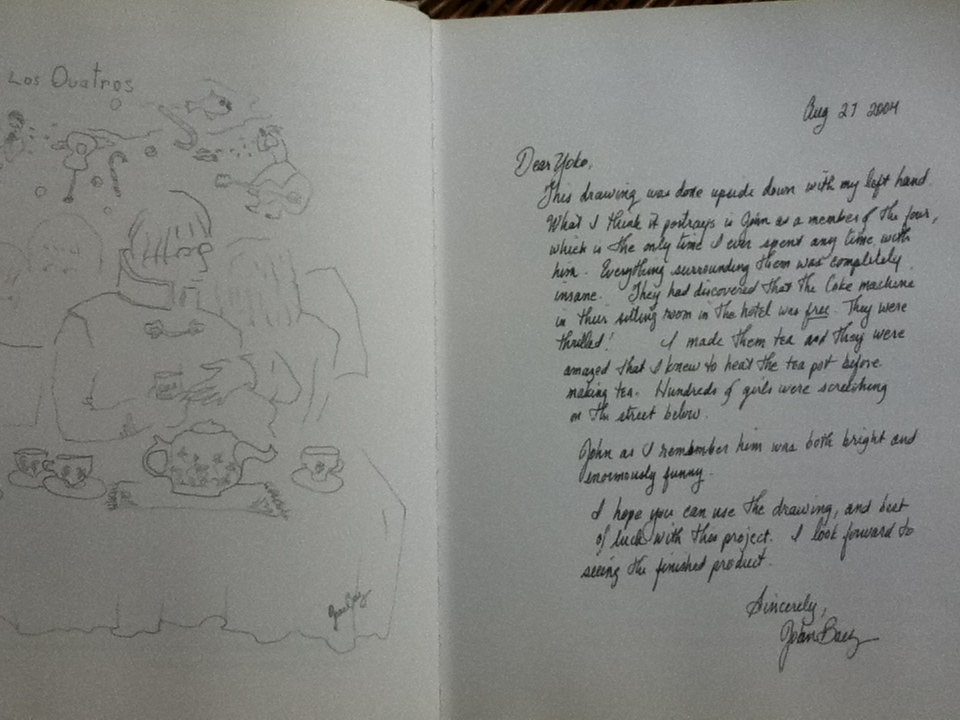 Los Quatros
Joan Baez
Aug 27 2004
Dear Yoko,
This drawing was done upside down with my left hand.
What I think it portrays is John as a member of the four,
which is the only time I ever spent any time with
him. Everything surrounding them was completely
insane. They had discovered that the Coke machine
in their sitting room in the hotel was free. They were
thrilled! I made them tea and they were
amazed that I knew to heat the tea pot before
making tea. Hundreds of girls were screeching
on the street below.
John as I remember him was both bright and
enormously funny.
I hope you can use the drawing, and best
of luck with this project. I look forward to
seeing the finished product.
Sincerely,
Joan Baez